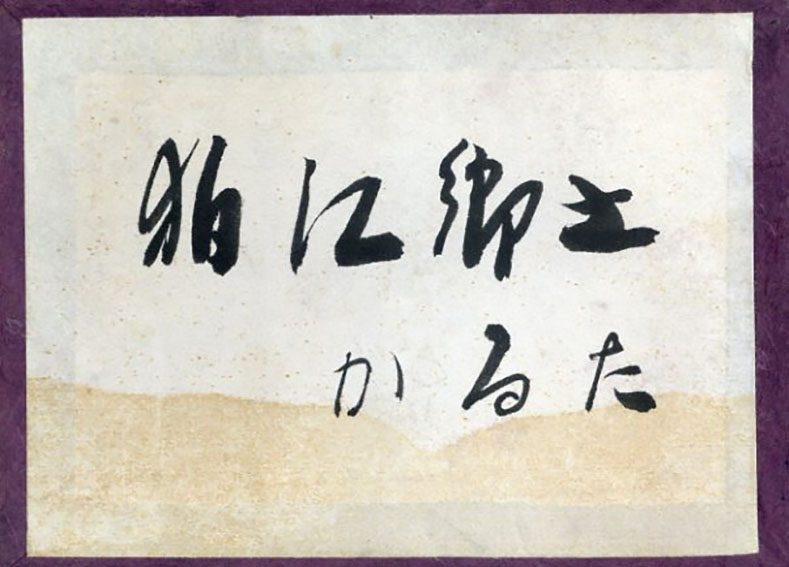 狛江郷土
かるた